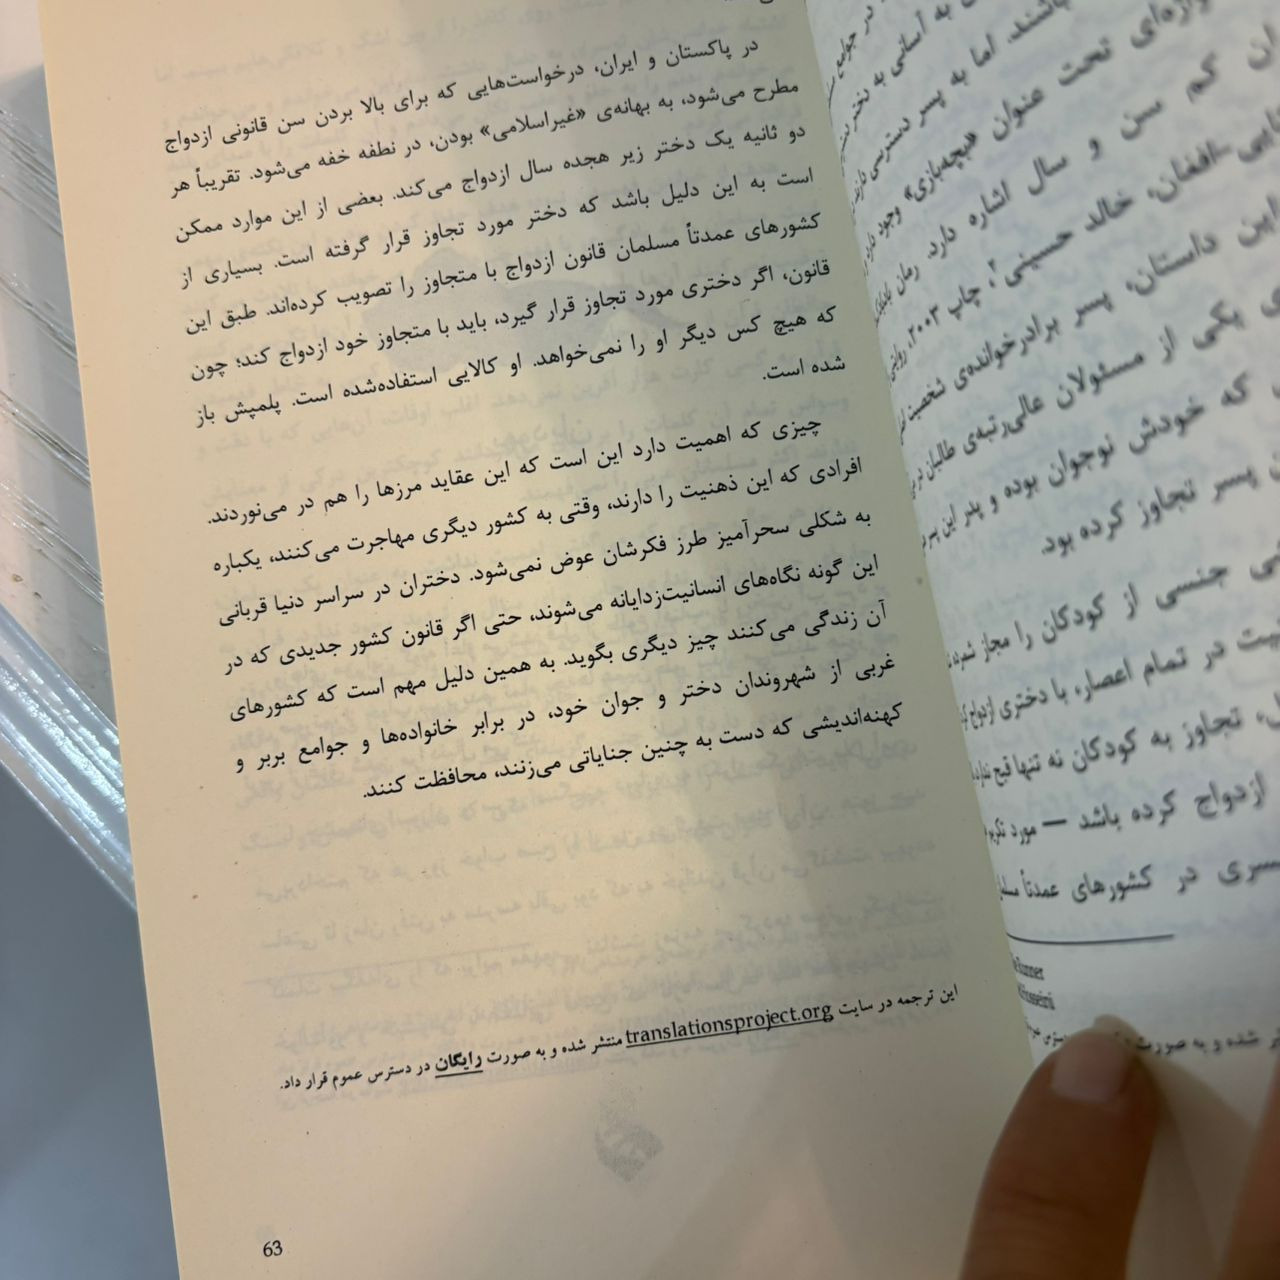 در پاکستان و ایران، درخواست‌هایی که برای بالا بردن سن قانونی ازدواج
مطرح می‌شود، به بهانه‌ی «غیراسلامی» بودن، در نطفه خفه می‌شود. تقریباً هر
دو ثانیه یک دختر زیر هجده سال ازدواج می‌کند. بعضی از این موارد ممکن
است به این دلیل باشد که دختر مورد تجاوز قرار گرفته است. بسیاری از
کشورهای عمدتاً مسلمان قانون ازدواج با متجاوز را تصویب کرده‌اند. طبق این
قانون، اگر دختری مورد تجاوز قرار گیرد، باید با متجاوز خود ازدواج کند؛ چون
که هیچ کس دیگر او را نمی‌خواهد. او کالایی استفاده‌شده است. پلمپش باز
شده است.
چیزی که اهمیت دارد این است که این عقاید مرزها را هم در می‌نوردند.
افرادی که این ذهنیت را دارند، وقتی به کشور دیگری مهاجرت می‌کنند، یکباره
به شکلی سحرآمیز طرز فکرشان عوض نمی‌شود. دختران در سراسر دنیا قربانی
این گونه نگاه‌های انسانیت‌زدایانه می‌شوند، حتی اگر قانون کشور جدیدی که در
آن زندگی می‌کنند چیز دیگری بگوید. به همین دلیل مهم است که کشورهای
غربی از شهروندان دختر و جوان خود، در برابر خانواده‌ها و جوامع بربر و
کهنه‌اندیشی که دست به چنین جنایاتی می‌زنند، محافظت کنند.
این ترجمه در سایت translationsproject.org منتشر شده و به صورت رایگان در دسترس عموم قرار داد.
63
در جوامع
به آسانی به دختر
باشند. اما به پسر دسترسی دارند
واژه‌ای تحت عنوان «بچه‌بازی» وجود دارد
ان کم سن و سال اشاره دارد. رمان
یی-افغان، خالد حسینی۲، چاپ ۲۰۰۳، روایتی
این داستان، پسر برادرخوانده‌ی شخصیت
ی یکی از مسئولان عالی‌رتبه‌ی طالبان
که خودش نوجوان بوده و پدر این پسر
پسر تجاوز کرده بود.
جنسی از کودکان را مجاز شمرده
یت در تمام اعصار، با دختری ازدواج
تجاوز به کودکان نه تنها قبح ندارد
ازدواج کرده باشد — مورد تکریم
سری در کشورهای عمدتاً
Runner
Hosseini
شده و به صورت